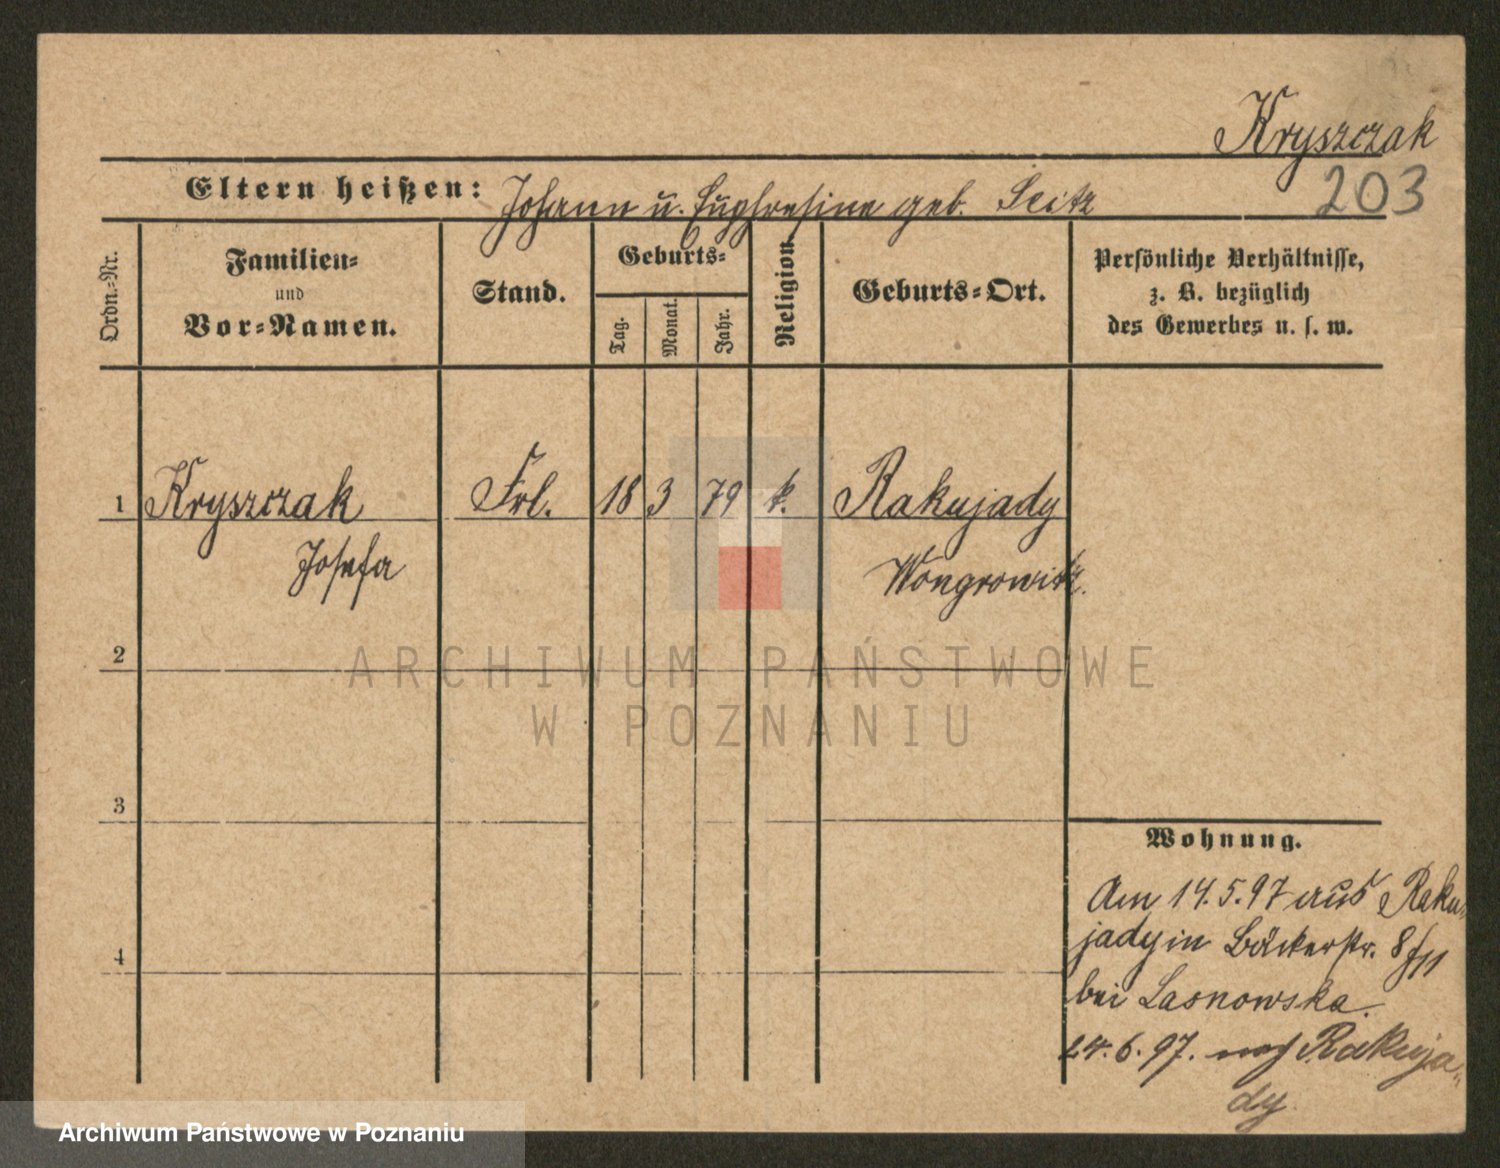 Kryszczak
203
Eltern heißen: Johann u. Euphrosine geb. Seitz
Ordn.-Nr.
Familien-
und
Vor-Namen.
Stand.
Geburts-
Tag.
Monat.
Jahr.
Religion.
Geburts-Ort.
Persönliche Verhältnisse,
z. B. bezüglich
des Gewerbes u. s. w.
1 Kryszczak Frl. 18 3 79 k. Rakujady
Josefa Wongrowitz.
2
3
4
Wohnung.
Am 14.5.97 aus Raku-
jady in Bäckerstr. 8
bei Lasnowska.
24.6.97. nach Rakuja-
dy
ARCHIWUM PAŃSTWOWE
W POZNANIU
Archiwum Państwowe w Poznaniu